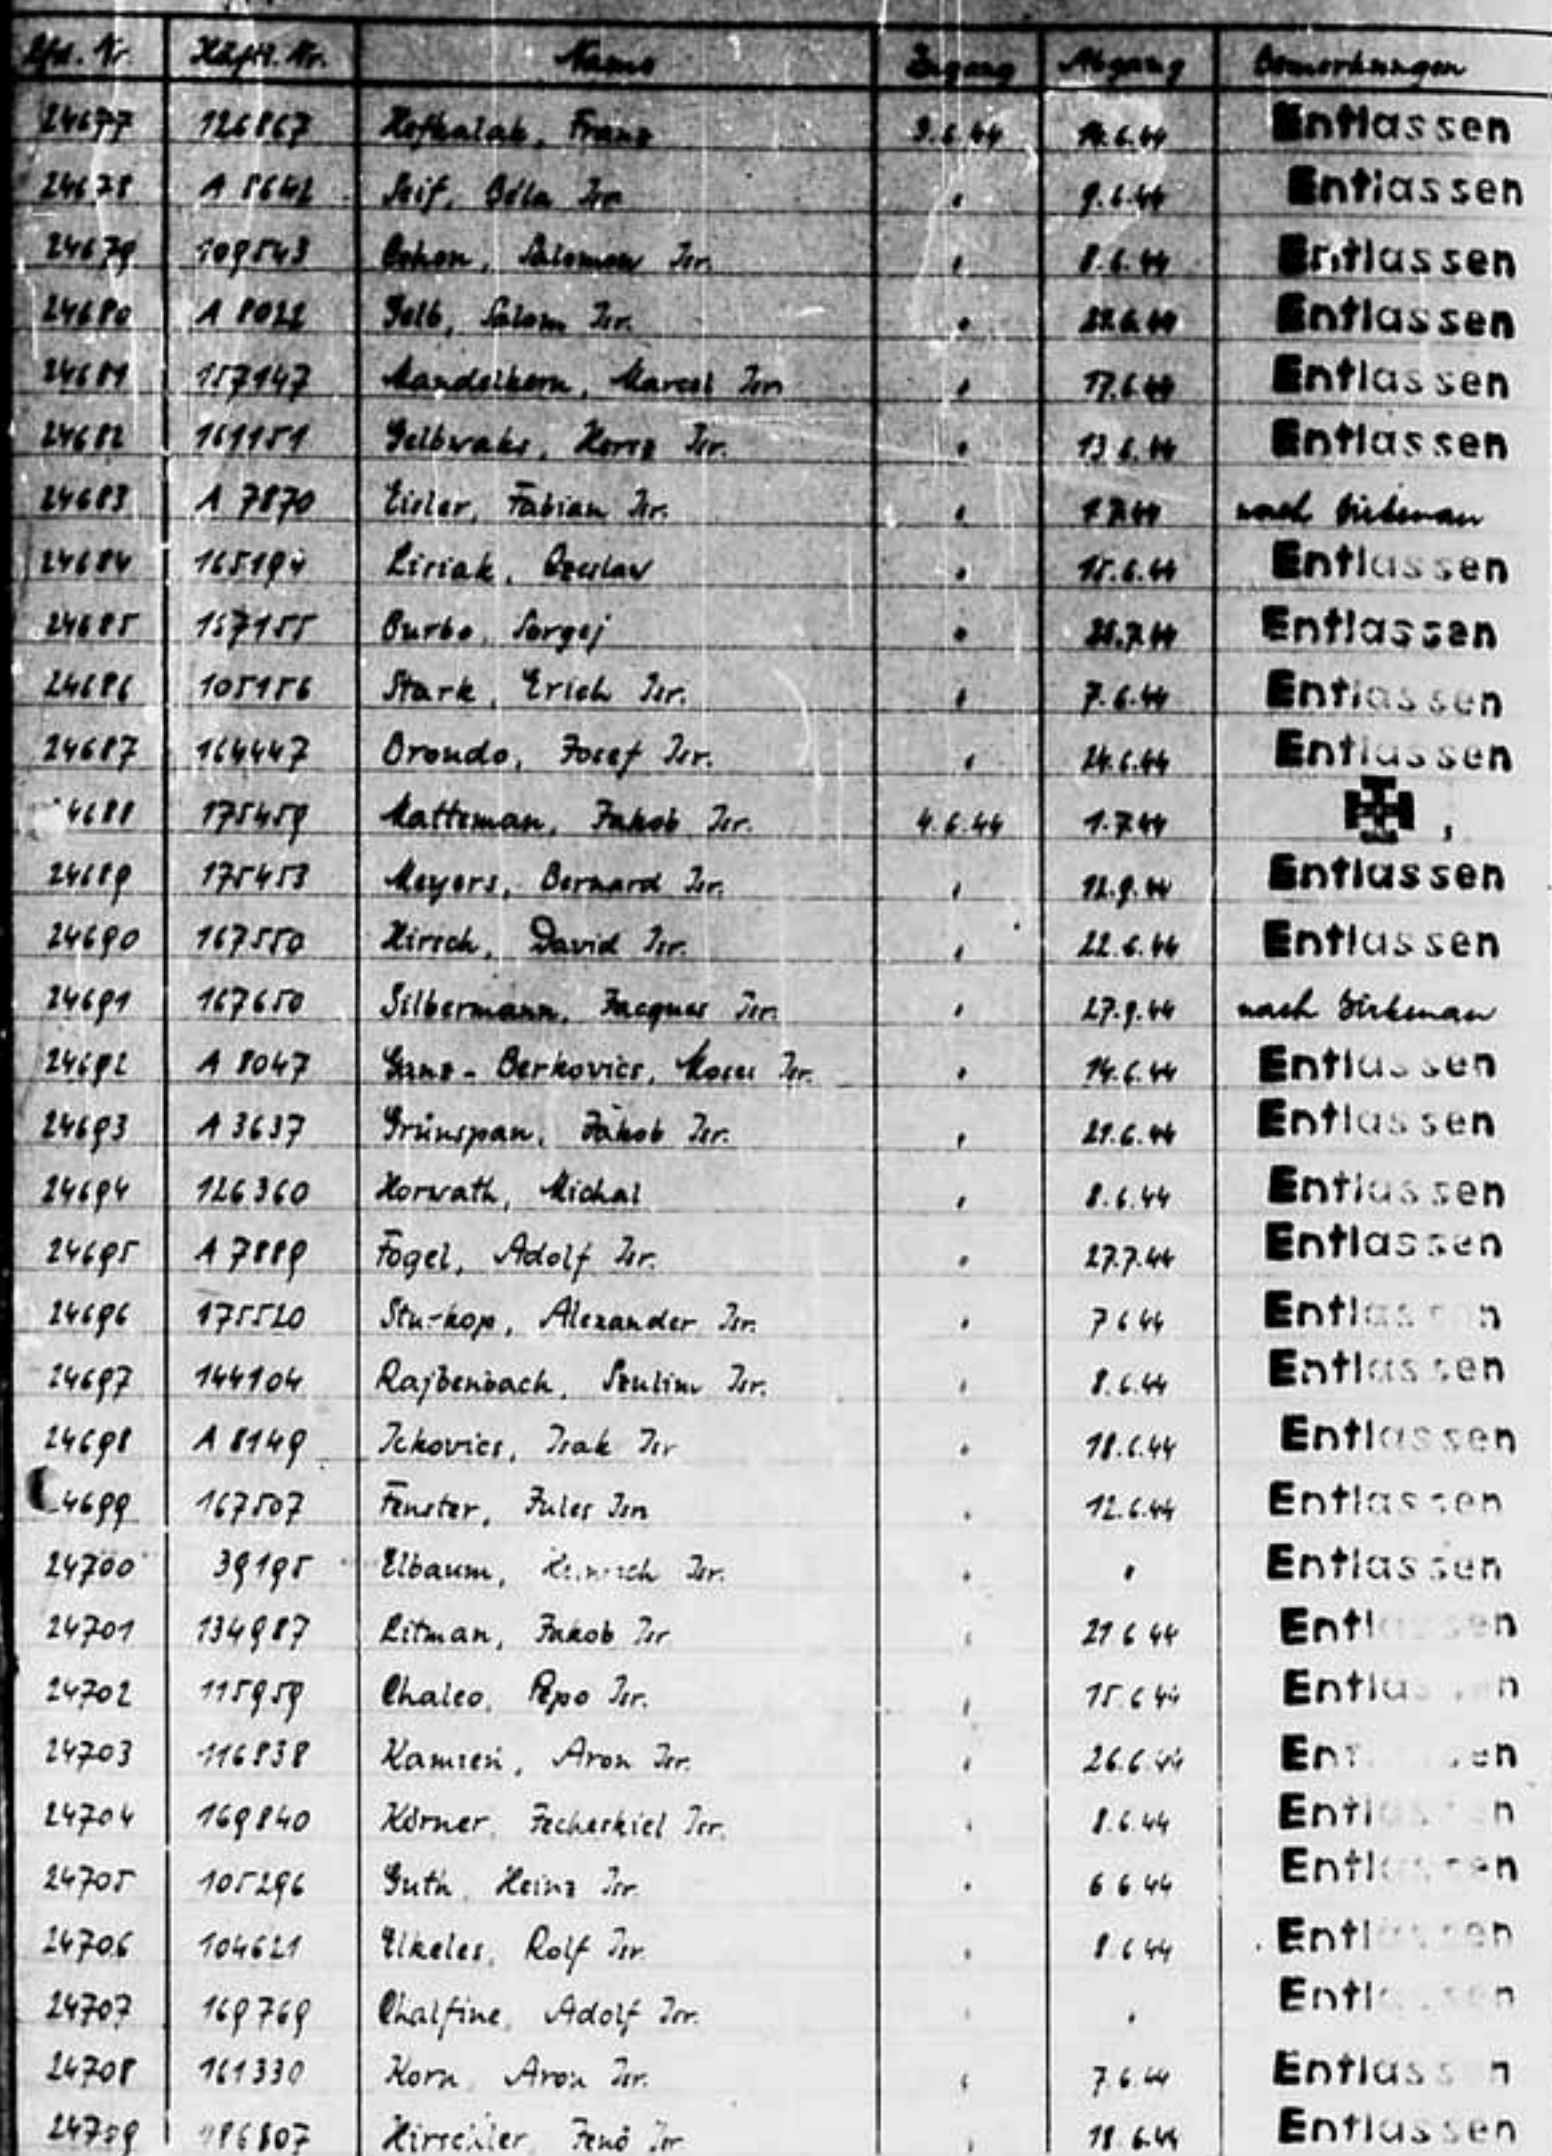 Lfd. Nr. Häftl. Nr. Name Zugang Abgang Bemerkungen
24677 126867 Franz 3.6.44 14.6.44 Entlassen
24678 A 8642 Seif, Béla Isr. " 9.6.44 Entlassen
24679 109543 Cohen, Salomon Isr. " 8.6.44 Entlassen
24680 A 8022 Gelb, Salom Isr. " Entlassen
24681 157147 Mandelkern, Marcel Isr. " 17.6.44 Entlassen
24682 161151 Gelbwaks, Hersz Isr. " 13.6.44 Entlassen
24683 A 7870 Eisler, Fabian Isr. " 1.7.44 nach Birkenau
24684 165194 Lisiak, Czeslav " 15.6.44 Entlassen
24685 167155 Burbo, Sergej " Entlassen
24686 105156 Stark, Erich Isr. " 7.6.44 Entlassen
24687 164447 Brondo, Josef Isr. " 24.6.44 Entlassen
4688 175459 Matteman, Jakob Isr. 4.6.44 1.7.44
24689 175453 Meyers, Bernard Isr. " 12.9.44 Entlassen
24690 167550 Hirsch, David Isr. " 22.6.44 Entlassen
24691 167650 Silbermann, Jacques Isr. " 27.9.44 nach Birkenau
24692 A 8047 Ganz-Berkovics, Moses Isr. " 14.6.44 Entlassen
24693 A 3637 Grünspan, Jakob Isr. " 21.6.44 Entlassen
24694 126360 Horvath, Michal " 8.6.44 Entlassen
24695 A 7889 Fogel, Adolf Isr. " 27.7.44 Entlassen
24696 175520 Stu-kop, Alexander Isr. " 7.6.44 Entlassen
24697 144104 Rajbenbach, Szulim Isr. " 8.6.44 Entlassen
24698 A 8149 Ickovics, Isak Isr " 18.6.44 Entlassen
4699 167507 Fenster, Jules Isr. " 12.6.44 Entlassen
24700 39195 Elbaum, Heinrich Isr. " " Entlassen
24701 134987 Litman, Jakob Isr " 21 6 44 Entlassen
24702 115959 Chaleo, Pepo Isr. " 15.6 44 Entlassen
24703 116838 Kamień, Aron Isr. " 26.6.44 Entlassen
24704 169840 Körner, Jecheskiel Isr. " 8.6.44 Entlassen
24705 105296 Guth, Heinz Isr. " 6 6 44 Entlassen
24706 104621 Elkeles, Rolf Isr. " 8.6 44 Entlassen
24707 169769 Chalfine, Adolf Isr. " " Entlassen
24708 161330 Korn, Aron Isr. " 7.6.44 Entlassen
24709 186807 Hirschler, Jenö Isr " 18.6.44 Entlassen